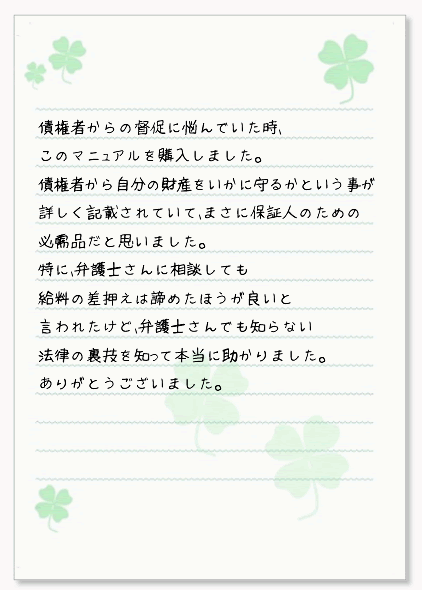 債権者からの督促に悩んでいた時、
このマニュアルを購入しました。
債権者から自分の財産をいかに守るかという事が
詳しく記載されていて、まさに保証人のための
必需品だと思いました。
特に、弁護士さんに相談しても
給料の差押えは諦めたほうが良いと
言われたけど、弁護士さんでも知らない
法律の裏技を知って本当に助かりました。
ありがとうございました。